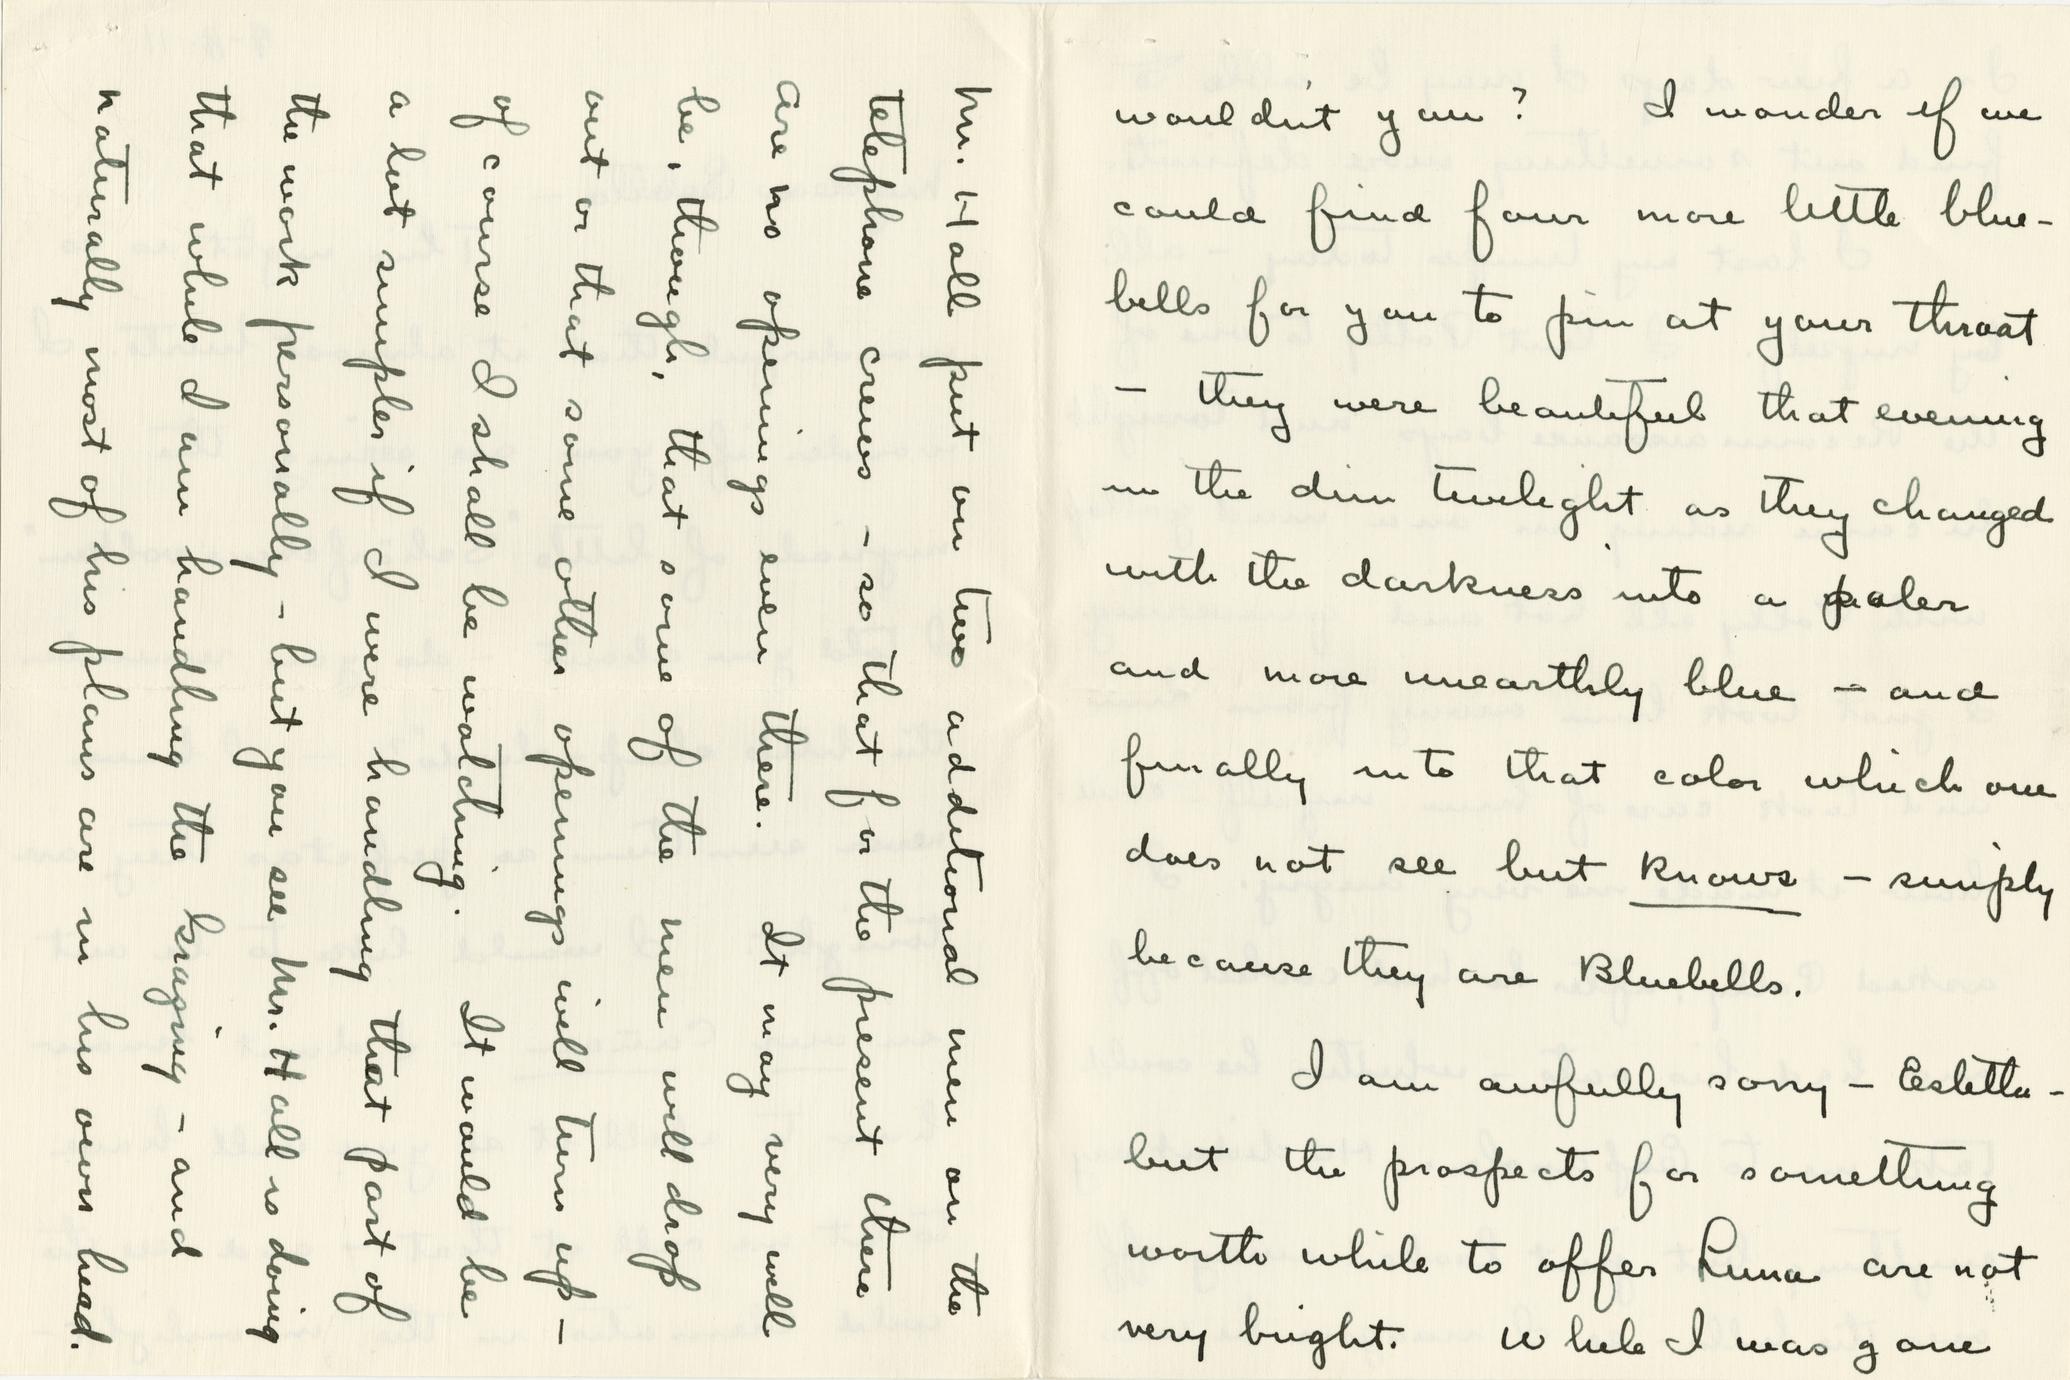 wouldn't you? I wonder if we
could find four more little blue-
bells for you to pin at your throat
- they were beautiful that evening
in the dim twilight as they changed
with the darkness into a paler
and more unearthly blue - and
finally into that color which one
does not see but knows - simply
because they are Bluebells.
I am awfully sorry - Estella -
but the prospects for something
worth while to offer Luna are not
very bright. While I was gone
Mr. Hall put on two additional men on the
telephone crews - so that for the present there
are no openings even there. It may very well
be, though, that some of the men will drop
out or that some other openings will turn up -
of course I shall be watching. It would be
a lot simpler if I were handling that part of
the work personally - but you see Mr. Hall is doing
that while I am handling the grazing - and
naturally most of his plans are in his own head.